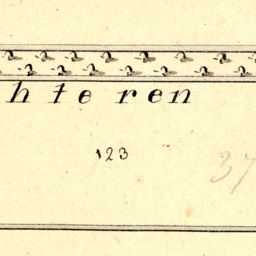 hteren
123
37